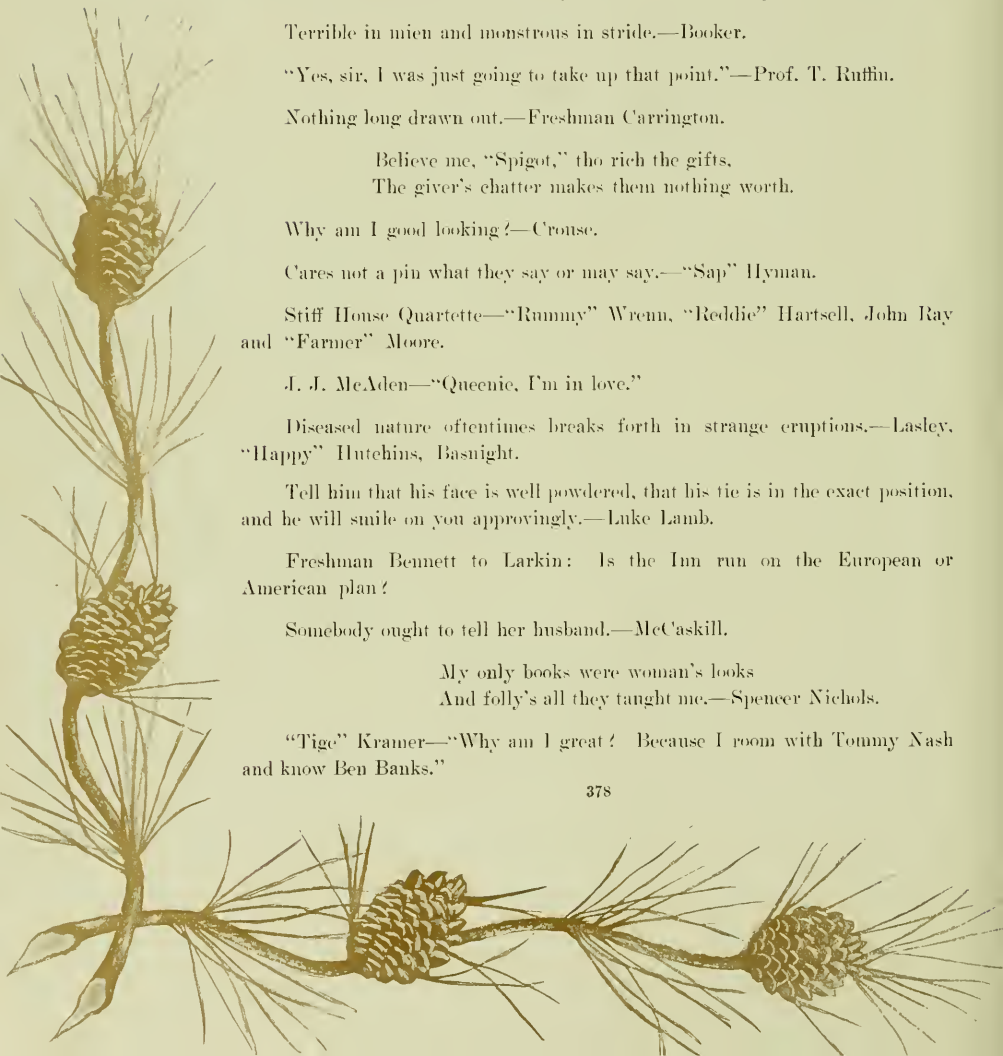 Terrible in mien and monstrous in stride.—Booker.
"Yes, sir, I was just going to take up that point."—Prof. T. Ruffin.
Nothing long drawn out.—Freshman Carrington.
Believe me, "Spigot," tho rich the gifts,
The giver's chatter makes them nothing worth.
Why am I good looking?—Crouse.
Cares not a pin what they say or may say.—"Sap" Hyman.
Stiff House Quartette—"Rummy" Wrenn, "Reddie" Hartsell, John Ray
and "Farmer" Moore.
J. J. McAden—"Queenie, I'm in love."
Diseased nature oftentimes breaks forth in strange eruptions.—Lasley,
"Happy" Hutchins, Basnight.
Tell him that his face is well powdered, that his tie is in the exact position,
and he will smile on you approvingly.—Luke Lamb.
Freshman Bennett to Larkin: Is the Inn run on the European or
American plan?
Somebody ought to tell her husband.—McCaskill.
My only books were woman's looks
And folly's all they taught me.—Spencer Nichols.
"Tige" Kramer—"Why am I great? Because I room with Tommy Nash
and know Ben Banks."
378